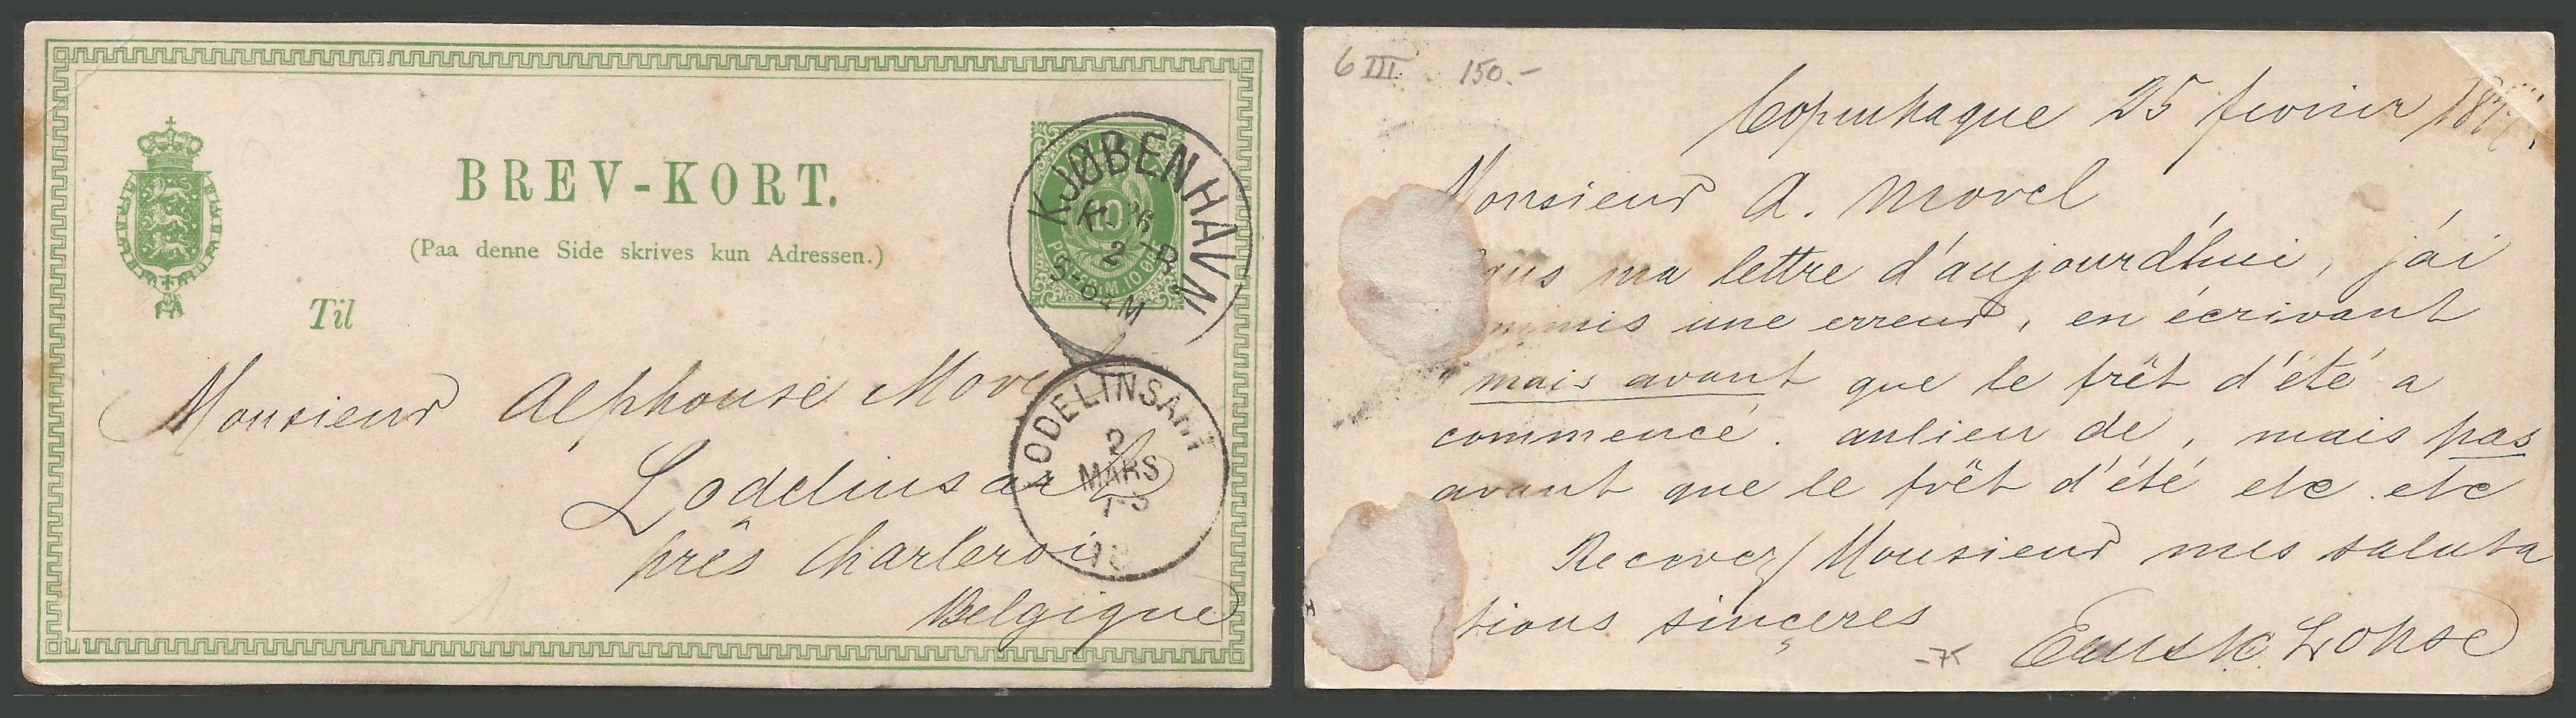 BREV-KORT.
(Paa denne Side skrives kun Adressen.)
Til
KJØBENHAVN
10
2
LODELINSART
2
MARS
Monsieur Alphonse Morel
Lodelinsart
près Charleroi
Belgique
6 III 150.-
Copenhague 25 fevrier
Monsieur A. Morel
ma lettre d'aujourd'hui, j'ai
une erreur, en écrivant
mais avant que le frêt d'été a
commencé. aulieu de, mais pas
avant que le frêt d'été etc etc
Recevez Monsieur mes saluta
tions sinçeres
-75
Lohse